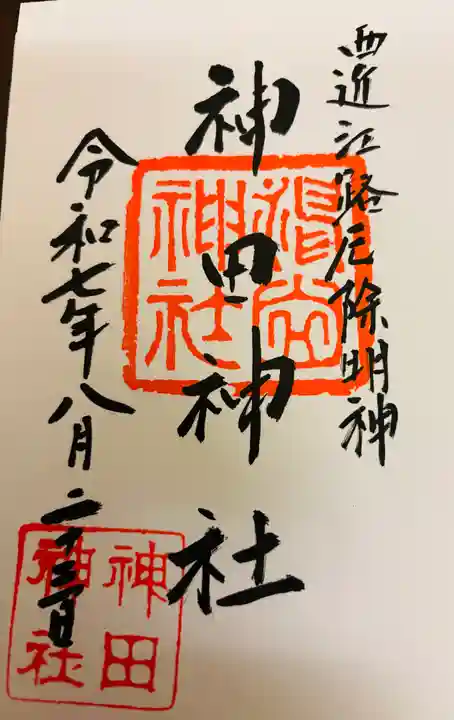 西近江路厄除明神
神田神社
神社
令和七年八月二十三日
神田
神社